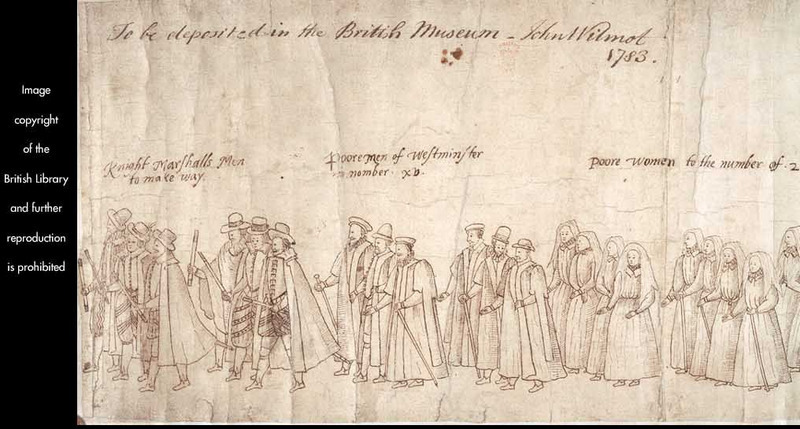 Image
copyright
of the
British Library
and further
reproduction
is prohibited
To be deposited in the British Museum - John Wilmot
1783.
Knight Marshalls Men
to make way.
Poore men of Westminster
in nomber. xv.
Poore women to the number of. 2